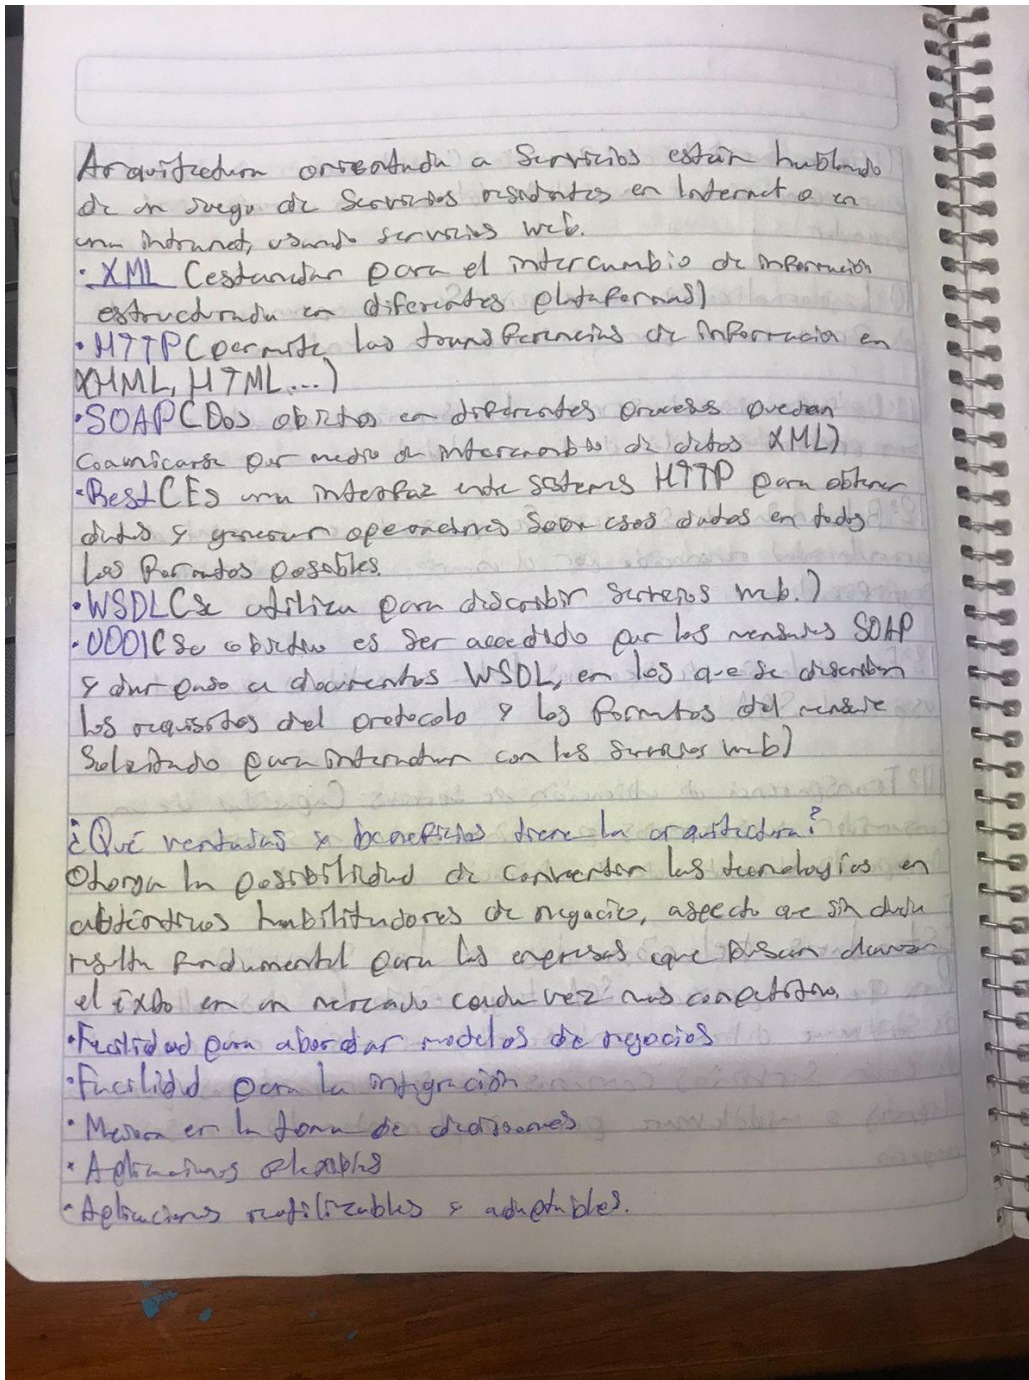 Arquitectura orientada a Servicios están hablando
de un juego de Servicios residentes en Internet o en
una intranet, usando servicios web.
· XML (estandar para el intercambio de información
estructurada en diferentes plataformas)
· HTTP (permite las transferencias de información en
XHML, HTML...)
· SOAP (Dos objetos en diferentes procesos puedan
comunicarse por medio de intercambio de datos XML)
· Rest (Es una interfaz entre sistemas HTTP para obtener
datos y generar operaciones sobre esos datos en todos
los formatos posibles.
· WSDL (se utiliza para describir servicios web.)
· UDDI (Su objetivo es ser accedido por los mensajes SOAP
y dar paso a documentos WSDL, en los que se describen
los requisitos del protocolo y los formatos del mensaje
Solicitado para interactuar con los servicios web)
¿Qué ventajas y beneficios tiene la arquitectura?
Otorga la posibilidad de convertir las tecnologías en
auténticos habilitadores de negocio, aspecto que sin duda
resulta fundamental para las empresas que buscan alcanzar
el éxito en un mercado cada vez mas competitivo.
· Facilidad para abordar modelos de negocios
· Facilidad para la integración
· Mejora en la toma de decisiones
· Aplicaciones flexibles
· Aplicaciones reutilizables y adaptables.